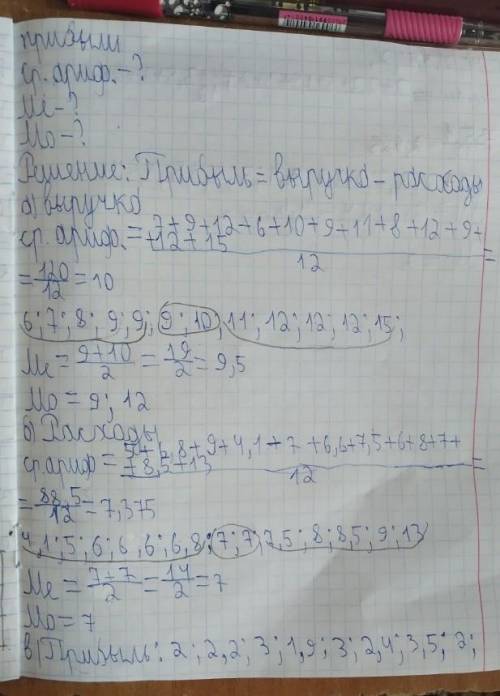 прибыли
ср. ариф. – ?
Ме – ?
Мо – ?
Решение: Прибыль = выручка – расходы
а) выручка
ср. ариф. = 7+9+12+6+10+9+11+8+12+9+
+12+15
12
=
= 120/12 = 10
6; 7; 8; 9; 9; 9; 10; 11; 12; 12; 12; 15;
Ме = 9+10/2 = 19/2 = 9,5
Мо = 9; 12
б) Расходы
ср. ариф = 6,8+9+4,1+7+6,6+7,5+6+8+7+
+8,5+13
12
=
= 88,5/12 = 7,375
4,1; 5; 6; 6,6; 6,8; 7; 7; 7,5; 8; 8,5; 9; 13
Ме = 7+7/2 = 14/2 = 7
Мо = 7
в) Прибыль: 2; 2,2; 3; 1,9; 3; 2,4; 3,5; 2;